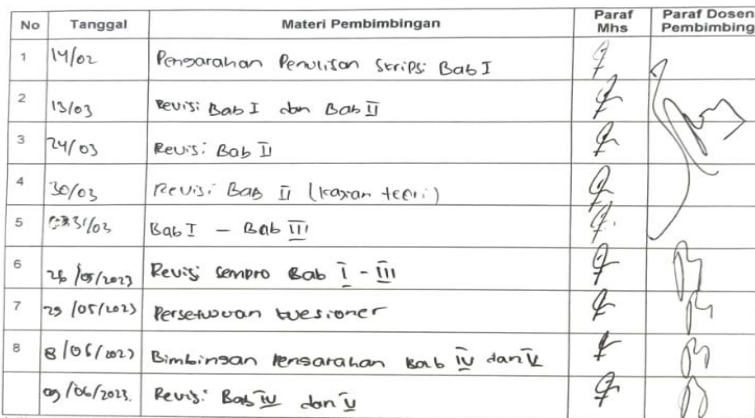 No Tanggal Materi Pembimbingan Paraf Mhs Paraf Dosen Pembimbing
1 14/02 Pengarahan Penulisan Skripsi Bab I
2 13/03 Revisi Bab I dan Bab II
3 24/03 Revisi Bab II
4 30/03 Revisi Bab II (kajian teori)
5 31/03 Bab I – Bab III
6 26/05/2023 Revisi Sempro Bab I - III
7 29/05/2023 Persetujuan kuesioner
8 8/06/2023 Bimbingan Pengarahan Bab IV dan V
09/06/2023. Revisi Bab IV dan V